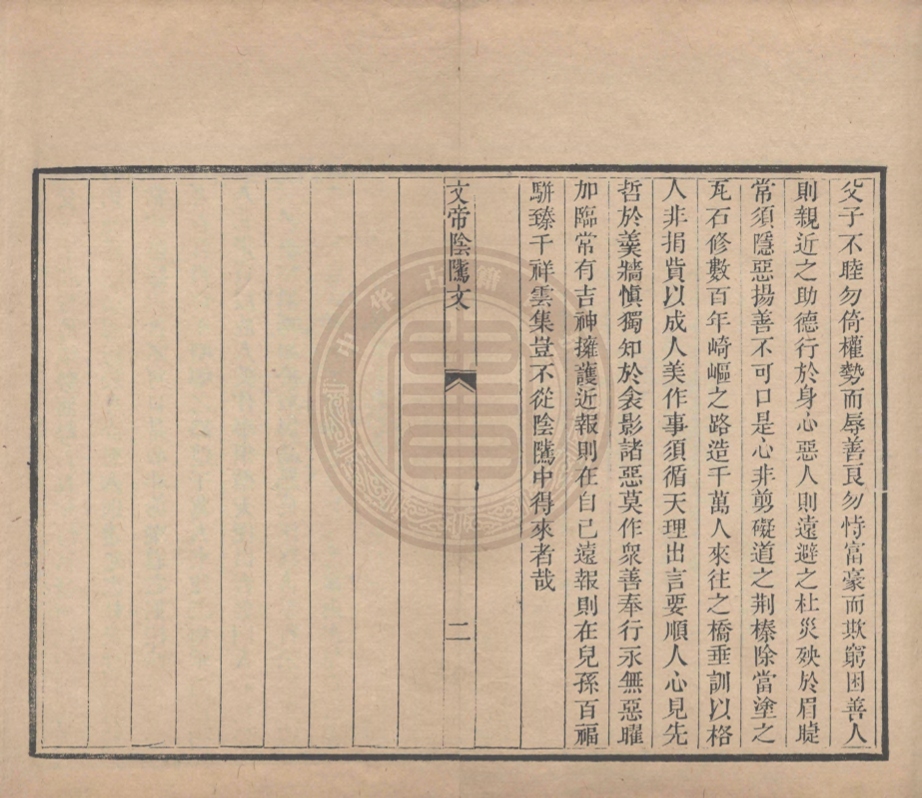 父子不睦勿倚權勢而辱善良勿恃富豪而欺窮困善人
則親近之助德行於身心惡人則遠避之杜災殃於眉睫
常須隱惡揚善不可口是心非剪礙道之荆榛除當塗之
瓦石修數百年崎嶇之路造千萬人來往之橋垂訓以格
人非捐貲以成人美作事須循天理出言要順人心見先
哲於羹牆慎獨知於衾影諸惡莫作衆善奉行永無惡曜
加臨常有吉神擁護近報則在自己遠報則在兒孫百福
駢臻千祥雲集豈不從陰騭中得來者哉
文帝陰騭文
二